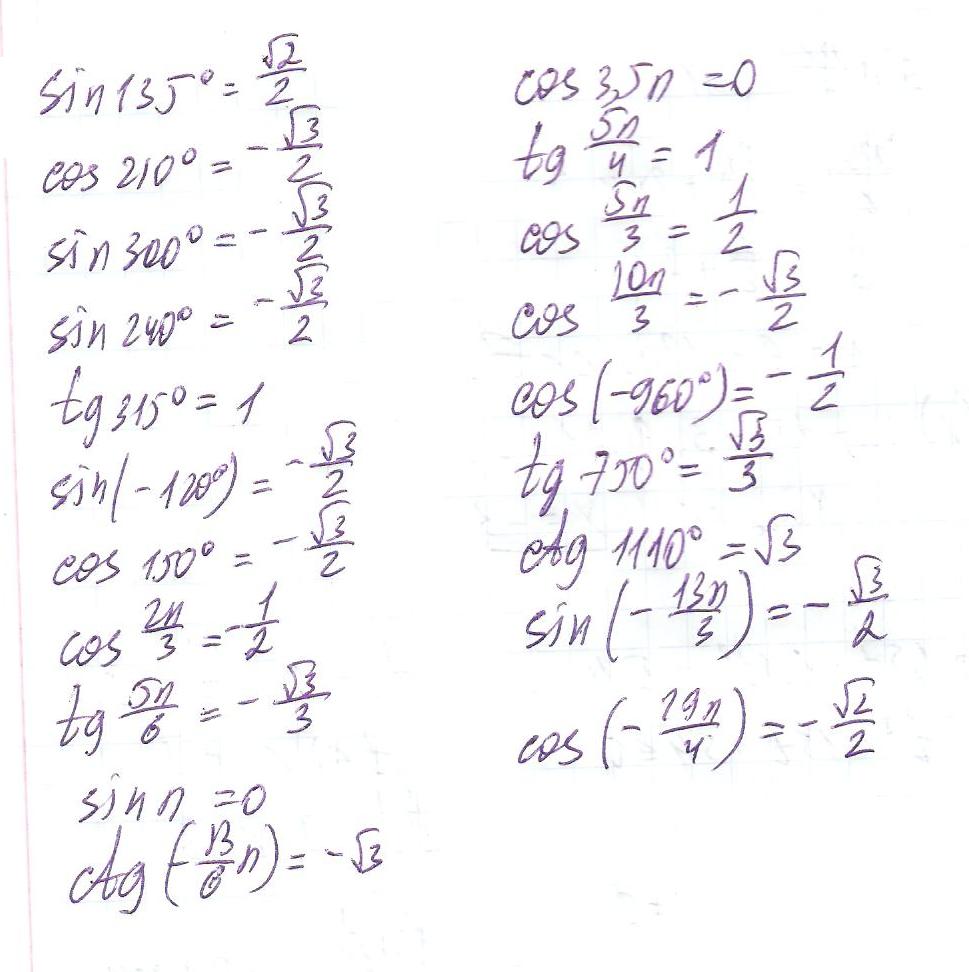 sin 135° = √2/2
cos 210° = -√3/2
sin 300° = -√3/2
sin 240° = -√3/2
tg 315° = 1
sin(-120°) = -√3/2
cos 150° = -√3/2
cos 2π/3 = -1/2
tg 5π/6 = -√3/3
sin π = 0
ctg(-13/6 π) = -√3
cos 3,5π = 0
tg 5π/4 = 1
cos 5π/3 = 1/2
cos 10π/3 = -√3/2
cos(-960°) = -1/2
tg 750° = √3/3
ctg 1110° = √3
sin(-13π/3) = -√3/2
cos(-19π/4) = -√2/2